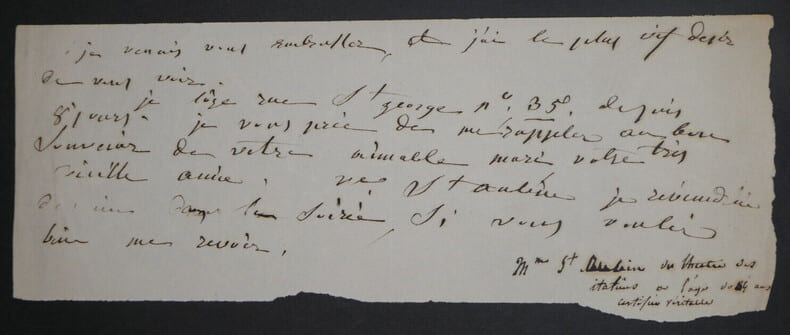 je venais vous embrasser, et j'ai le plus vif desir
de vous voir.
je loge rue St george n°. 35. depuis
8 jours. je vous prie de me rappeler au bon
souvenir de votre aimable mari votre très
vieille amie. ve St aubin je reviendrai
dans la soirée, si vous voulez
bien me revoir.
Mme St Aubin du théâtre des
italiens a l'age de ans
certifié véritable